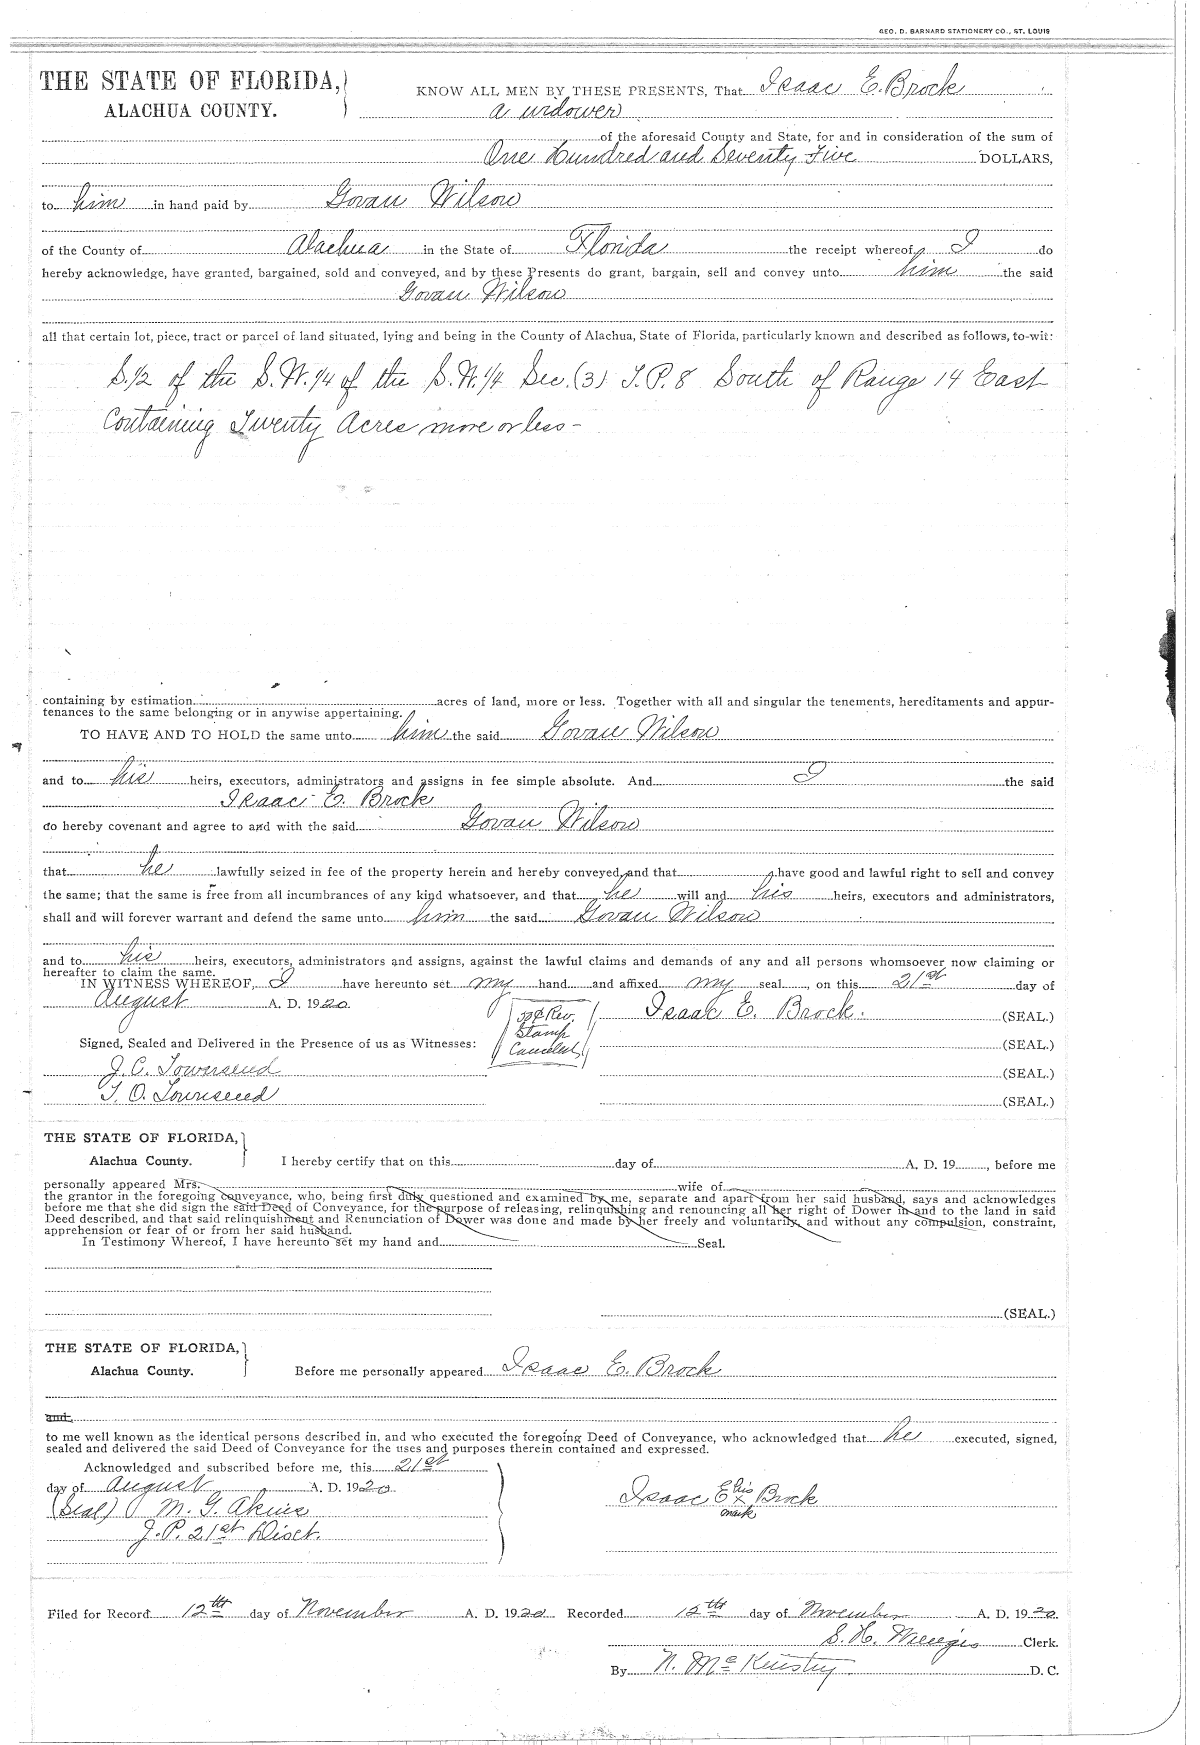 GEO. D. BARNARD STATIONERY CO., ST. LOUIS
THE STATE OF FLORIDA,
ALACHUA COUNTY.
KNOW ALL MEN BY THESE PRESENTS, That Isaac E. Brock
a widower
of the aforesaid County and State, for and in consideration of the sum of
One Hundred and Seventy Five DOLLARS,
to him in hand paid by Govan Wilson
of the County of Alachua in the State of Florida the receipt whereof I do
hereby acknowledge, have granted, bargained, sold and conveyed, and by these Presents do grant, bargain, sell and convey unto him the said
Govan Wilson
all that certain lot, piece, tract or parcel of land situated, lying and being in the County of Alachua, State of Florida, particularly known and described as follows, to-wit:
S.1/2 of the S.W.1/4 of the S.W.1/4 Sec. (3) T.P. 8 South of Range 14 East
Containing Twenty Acres more or less -
containing by estimation acres of land, more or less. Together with all and singular the tenements, hereditaments and appur-
tenances to the same belonging or in anywise appertaining.
TO HAVE AND TO HOLD the same unto him the said Govan Wilson
and to his heirs, executors, administrators and assigns in fee simple absolute. And I the said
Isaac E. Brock
do hereby covenant and agree to and with the said Govan Wilson
that he lawfully seized in fee of the property herein and hereby conveyed, and that have good and lawful right to sell and convey
the same; that the same is free from all incumbrances of any kind whatsoever, and that he will and his heirs, executors and administrators,
shall and will forever warrant and defend the same unto him the said Govan Wilson
and to his heirs, executors, administrators and assigns, against the lawful claims and demands of any and all persons whomsoever now claiming or
hereafter to claim the same.
IN WITNESS WHEREOF, I have hereunto set my hand and affixed my seal, on this 21st day of
August A. D. 1920
50¢ Rev.
Stamp
Canceled
Isaac E. Brock. (SEAL.)
Signed, Sealed and Delivered in the Presence of us as Witnesses: (SEAL.)
J. C. Townsend (SEAL.)
T. O. Townsend (SEAL.)
THE STATE OF FLORIDA,
Alachua County.
I hereby certify that on this day of A. D. 19 , before me
personally appeared Mrs. wife of
the grantor in the foregoing conveyance, who, being first duly questioned and examined by me, separate and apart from her said husband, says and acknowledges
before me that she did sign the said Deed of Conveyance, for the purpose of releasing, relinquishing and renouncing all her right of Dower in and to the land in said
Deed described, and that said relinquishment and Renunciation of Dower was done and made by her freely and voluntarily, and without any compulsion, constraint,
apprehension or fear of or from her said husband.
In Testimony Whereof, I have hereunto set my hand and Seal.
(SEAL.)
THE STATE OF FLORIDA,
Alachua County.
Before me personally appeared Isaac E. Brock
and
to me well known as the identical persons described in, and who executed the foregoing Deed of Conveyance, who acknowledged that he executed, signed,
sealed and delivered the said Deed of Conveyance for the uses and purposes therein contained and expressed.
Acknowledged and subscribed before me, this 21st
day of August A. D. 1920
(Seal) M. G. Akins
J. P. 21st Disct.
Isaac E his x mark Brock
Filed for Record 12th day of November A. D. 1920 Recorded 12th day of November A. D. 1920
S. H. Clerk.
By N. McKinstry D. C.